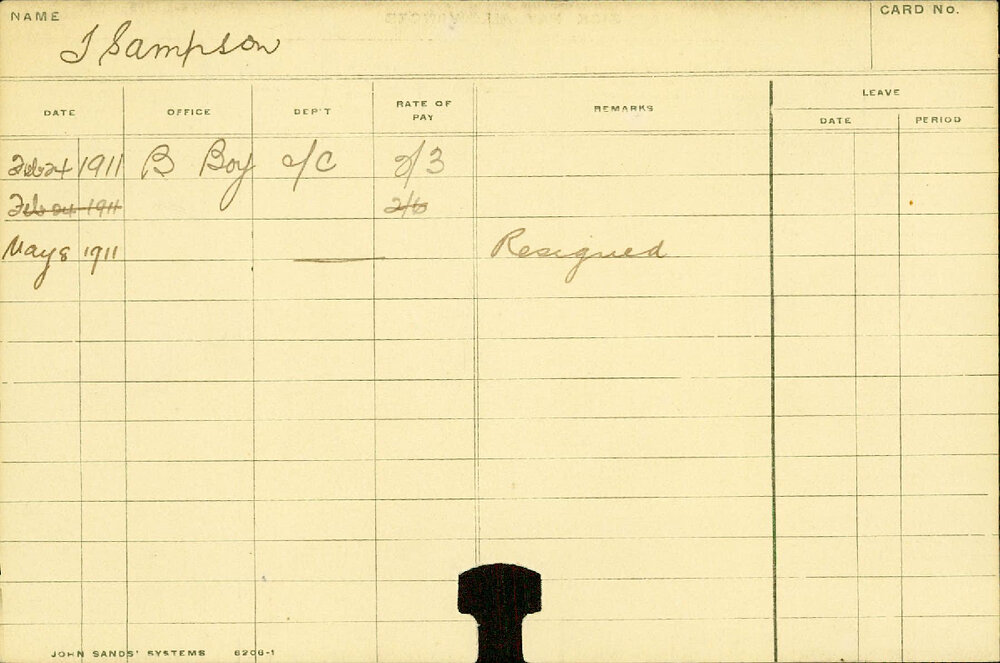 NAME
CARD No.
J Sampson
DATE OFFICE DEP'T RATE OF PAY REMARKS LEAVE
DATE PERIOD
Feb 24 1911 B Boy a/c 2/3
Feb 24 1911 2/6
May 8 1911 Resigned
JOHN SANDS' SYSTEMS 6206-1